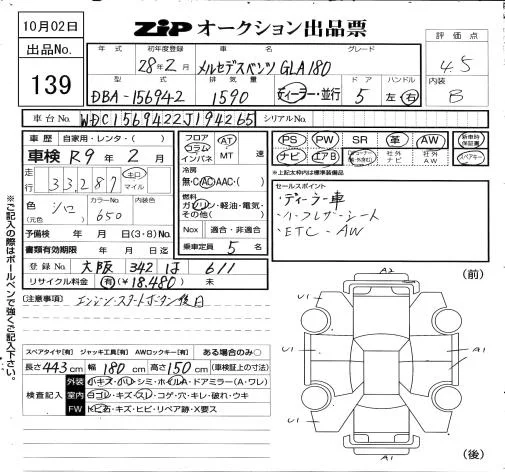 10月02日
出品No.
139
ZIP オークション出品票
評価点
4.5
内装
B
年式 初年度登録 車名 グレード
28年2月 メルセデスベンツ GLA180
型式 排気量 ドア ハンドル
DBA-156942 1590 ディーラー・並行 5 左・右
車台No. WDC1569422J194265 シリアルNo.
車歴 自家用・レンタ・( )
車検 R9年2月
走行 33,287 キロ マイル
色(元色) シロ カラーNo. 650 内装色
予備検 年 月 日(3・8)No.
書類有効期限 年 月 日迄
登録No. 大阪 342 は 611
リサイクル料金 有(¥18,480) 未
フロア コラム インパネ AT MT 速
冷房 無・C・AC・AAC・( )
燃料 ガソリン・軽油・電気・その他( )
Nox 適合・非適合
乗車定員 5 名
PS PW SR 革 AW 新車時保証書
ナビ エアB 社外ナビ 社外AW スペアキー
*上記太枠内は標準装備品
セールスポイント
・ディーラー車
・ハーフレザーシート
・ETC・AW
(注意事項) エンジンスタートボタン後日
スペアタイヤ[有] ジャッキ工具[有] AWロックキー[有] ある場合のみ○
長さ443cm 幅180cm 高さ150cm (車検証上の寸法)
検査記入
外装 小キズ・ハリ・シミ・ホイルA・ドアミラー(A・ワレ)
室内 ヨゴレ・キズ・スレ・コゲ・穴・キレ・破れ・ウキ
FW トビ石・キズ・ヒビ・リペア跡・X要ス
※ご記入の際はボールペンで強くご記入下さい。
(前)
A2
U1
U1
A1
U1
A1
A2
(後)